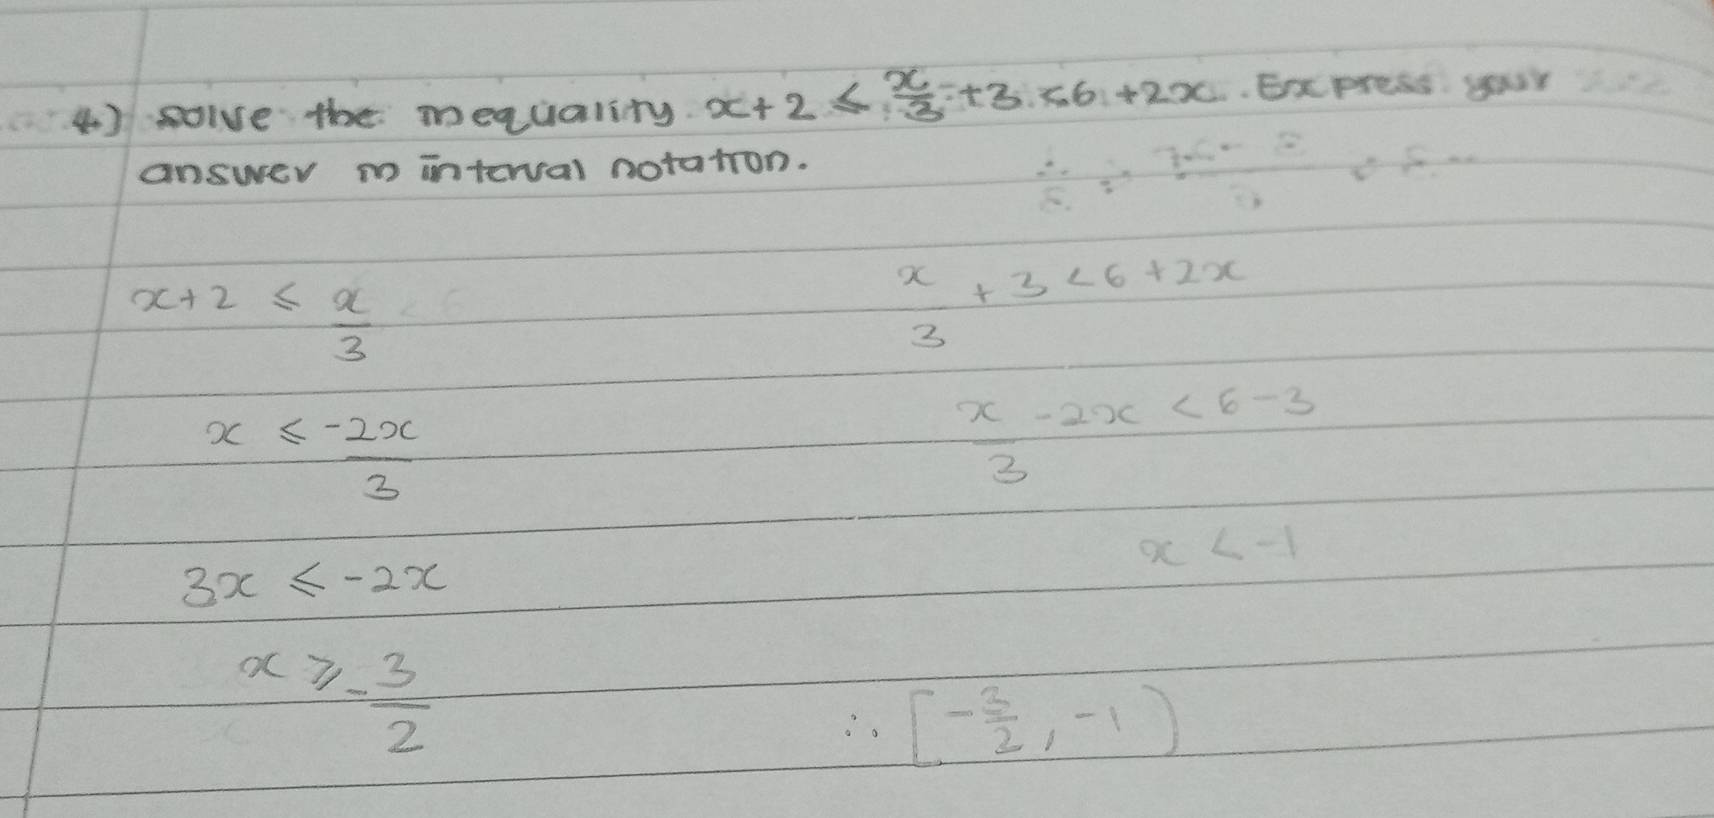 4) solve the inequality x+2 ≤ x/3 +3 < 6 +2x. Express your
answer in interval notation.
x+2 ≤ x/3
x/3 + 3 < 6 + 2x
x ≤ -2x/3
x/3 - 2x < 6 - 3
3x ≤ -2x
x < -1
x ≥ -3/2
∴ [-3/2, -1)